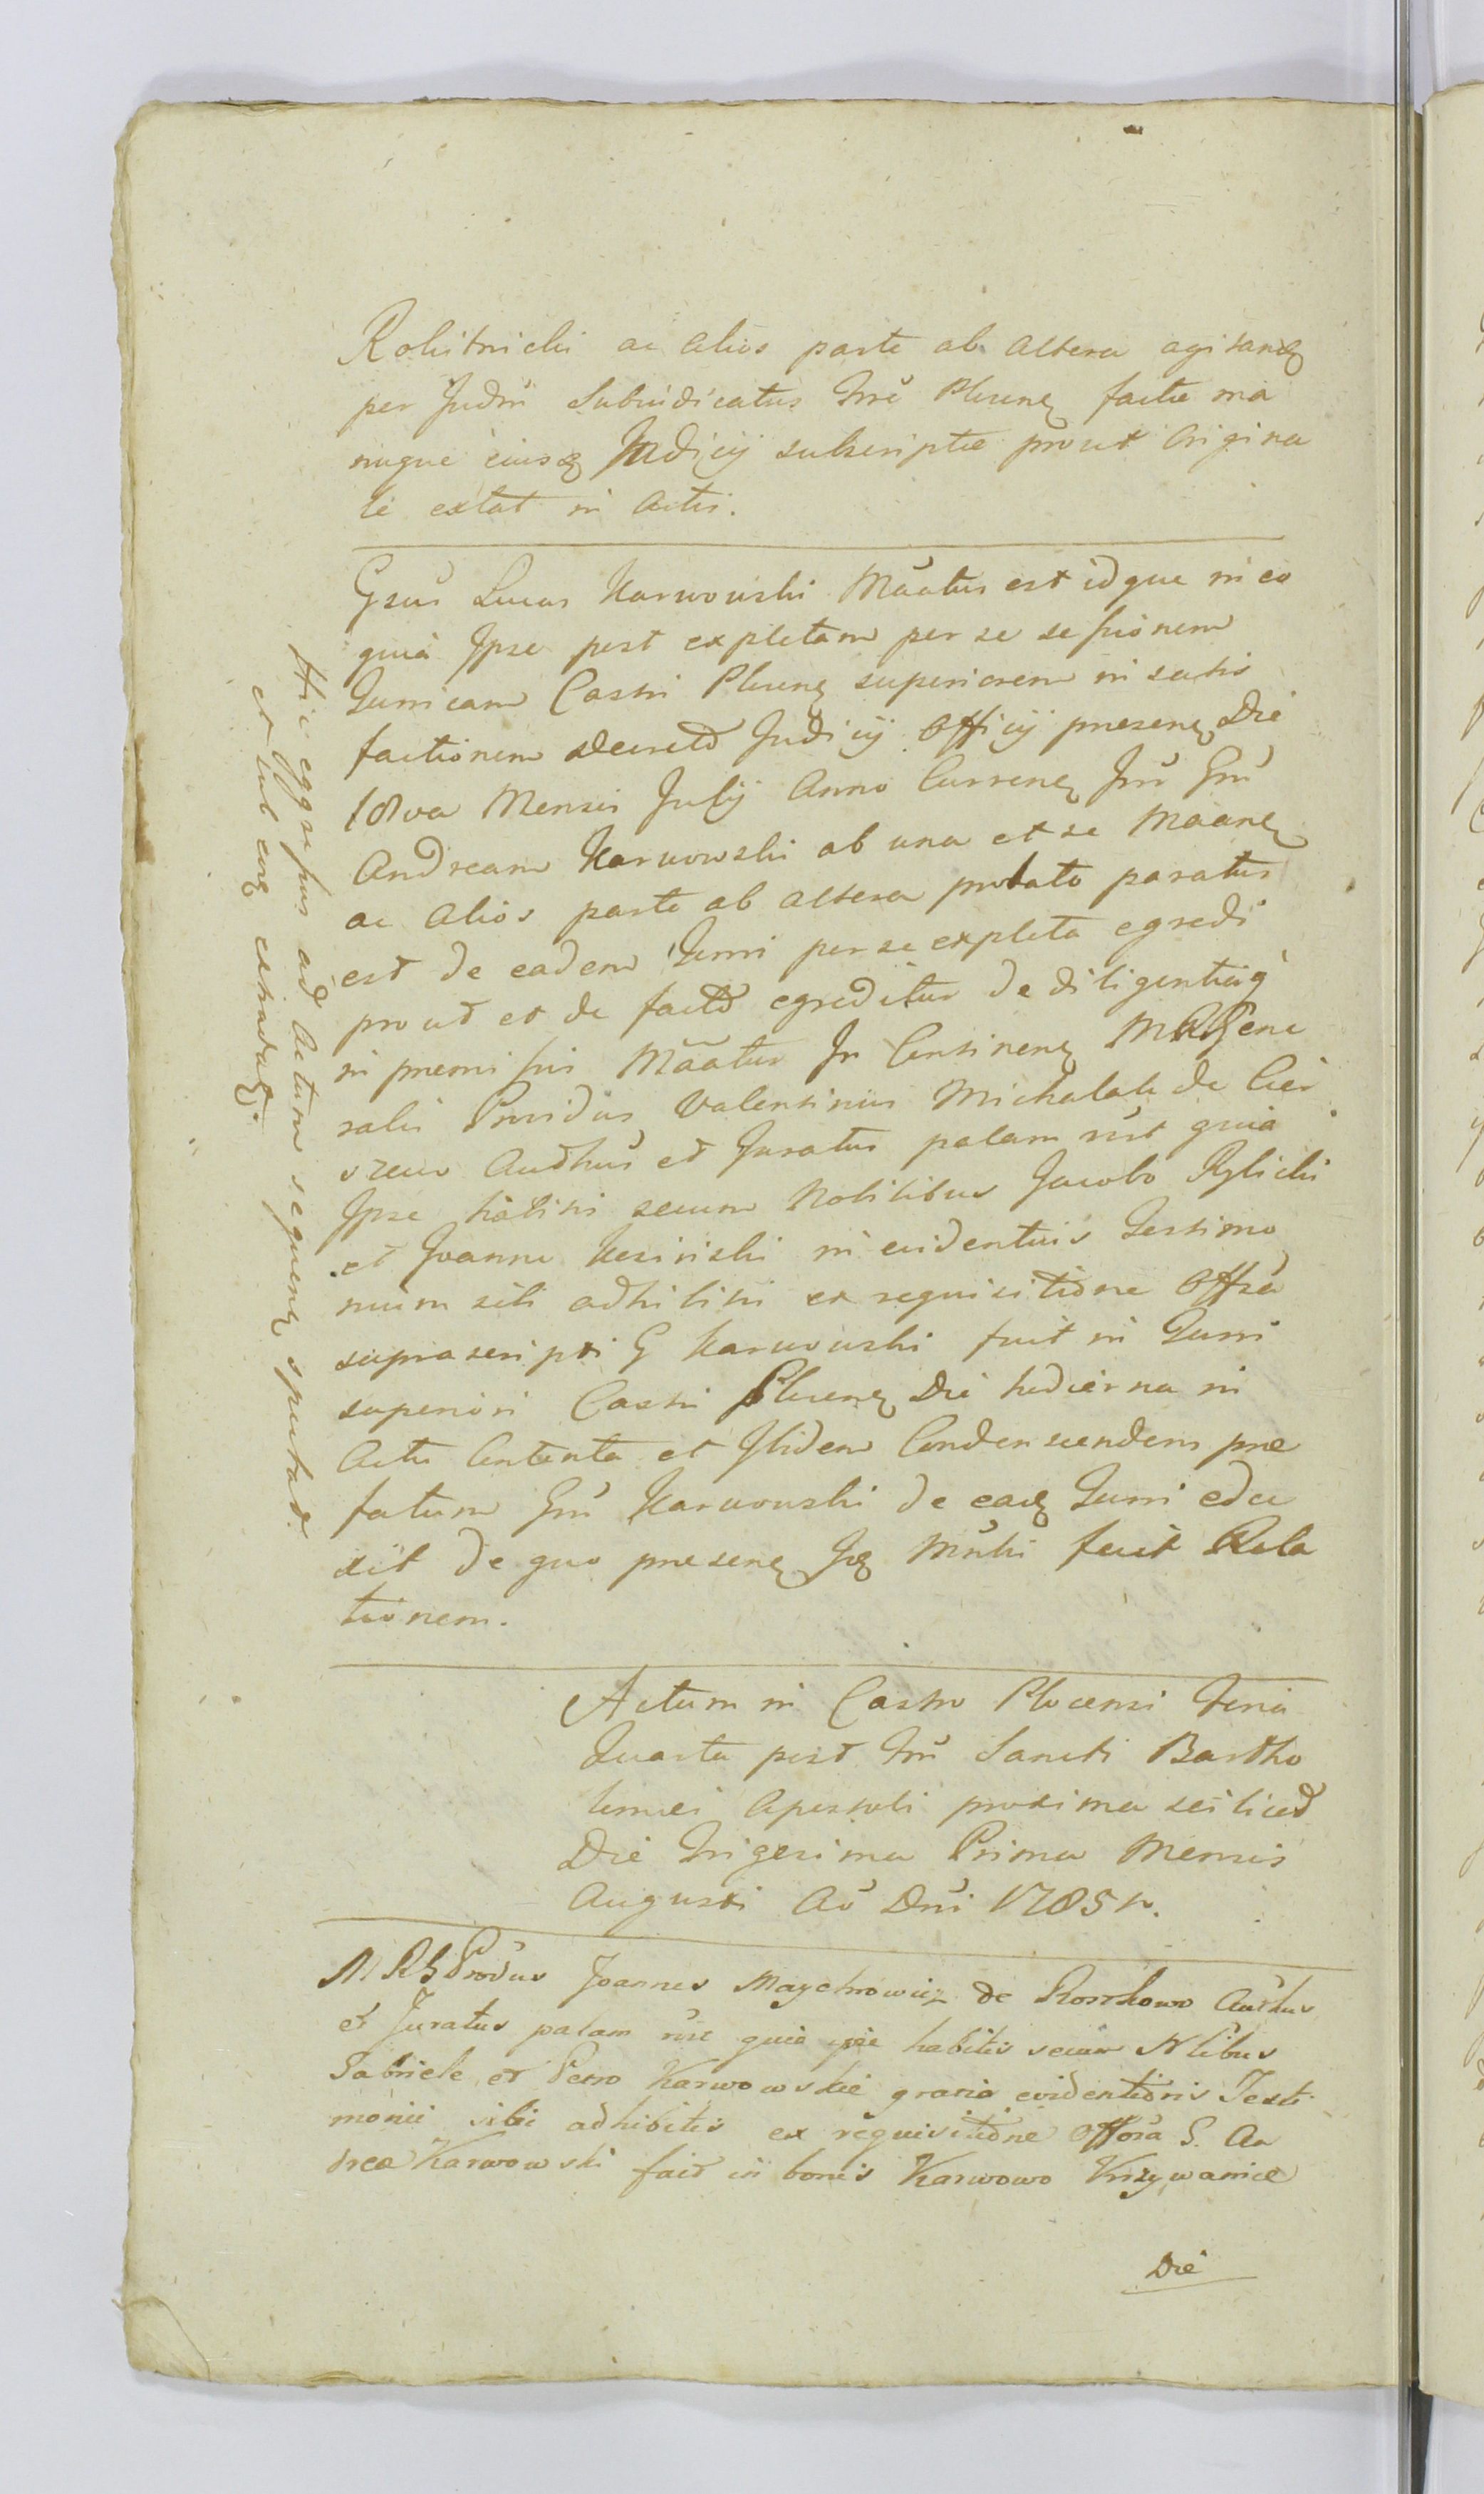 Rokitnicki ac alios parte ab altera agitanꝫ
per Judm̃ Subiudicatus Trrẽ Plocenꝫ factæ ma
nuque eiusꝫ Judicij subscriptæ prout Origina
le extat in Actis.
Gsũs Lucas Karwowski Mãatus est idque in eo
quia Ipse post expletam per se sessionem
Turricam Castri Plocenꝫ superiorem in satis
factionem decreto Judicij Officij præsenꝫ Die
18va Mensis Julij Anno Currenꝫ Inr̃ Gm̃
Andream Karwowski ab una et se Mãanꝫ
ac alios parte ab altera prolato paratus
est de eadem Turri per se expleta egredi
prout et de facto egreditur de diligentiaq̃
in præmissis Mãatur In Continenꝫ MRGene
ralis Providus Valentinus Michalak de Cier
szewo Authus̃ et Juratus palam rũt quia
Ipse habitis secum Nobilibus Jacobo Rylicki
et Joanne Kesinski in evidentius Testimo
nium sibi adhibitis ex requisitione Offsa
suprascripti G Karwowski fuit in Turri
superiori Castri Plocenꝫ Die hodierna in
Actu Contenta et Ibidem Condenscendens præ
fatum Gm̃ Karwowski de eaꝫ Turri edu
xit de quo præsenꝫ Jꝫ Mnh̃i fecit Rela
tionem.
Hic eggressus ad Actum sequenꝫ spectat.
et sub eoꝫ extradaꝫ.
Actum in Castro Plocensi Feria
Quarta post Fm̃ Sancti Bartho
lomæi Apostoli proxima scilicet
Die Trigesima Prima Mensis
Augusti Aõ Dnĩ 1785 r.
M RG Produs Joannes Maychrowicz de Rosrkowo Authus
et Juratus palam rũt quia ipse habitis secum Nlibus
Gabriele et Petro Karwowskie gratia evidentioris Testi
monii sibi adhibitis ex requisitione Offõsa G. An
dreæ Karwowski fuit in bonis Karwowo Krzywanice
Die